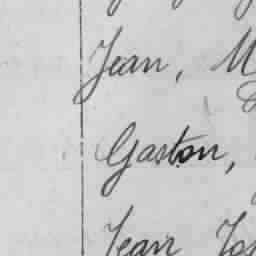 Jean, M
Gaston,
Jean Jos